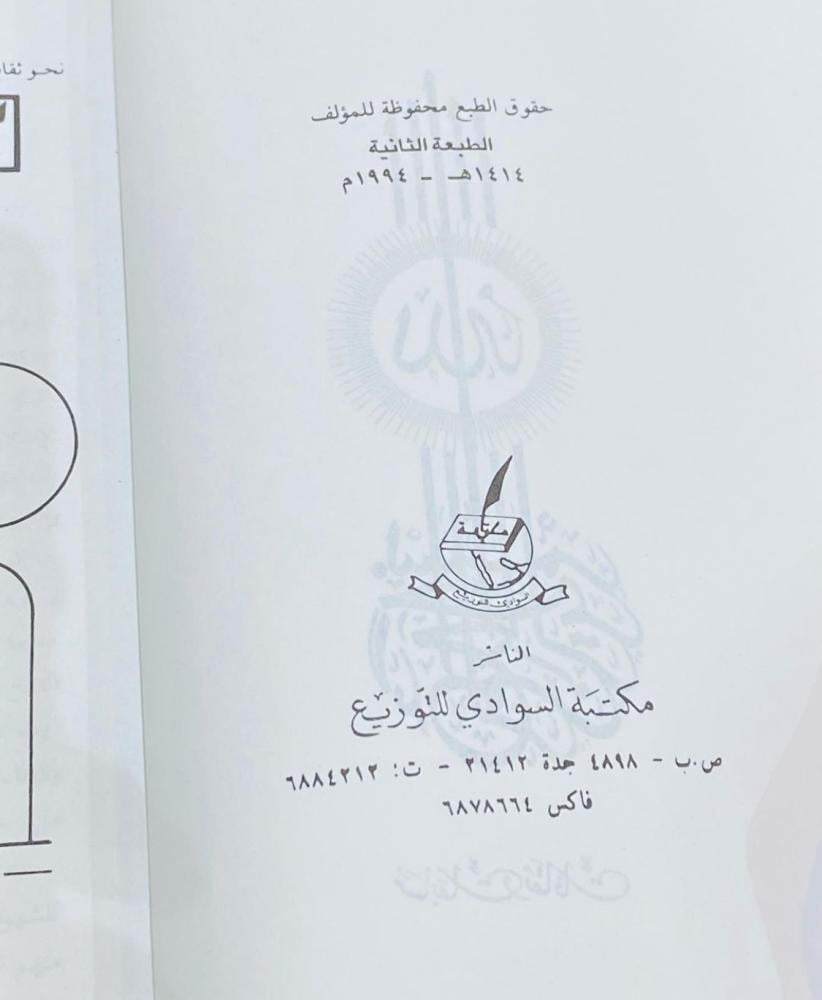 حقوق الطبع محفوظة للمؤلف
الطبعة الثانية
١٤١٤هـ – ١٩٩٤م
مكتبة
السوادي للتوزيع
الناشر
مكتبة السوادي للتوزيع
ص.ب – ٤٨٩٨ جدة ٢١٤١٢ – ت: ٦٨٨٤٢١٢
فاكس ٦٨٧٨٦٦٤
نحو